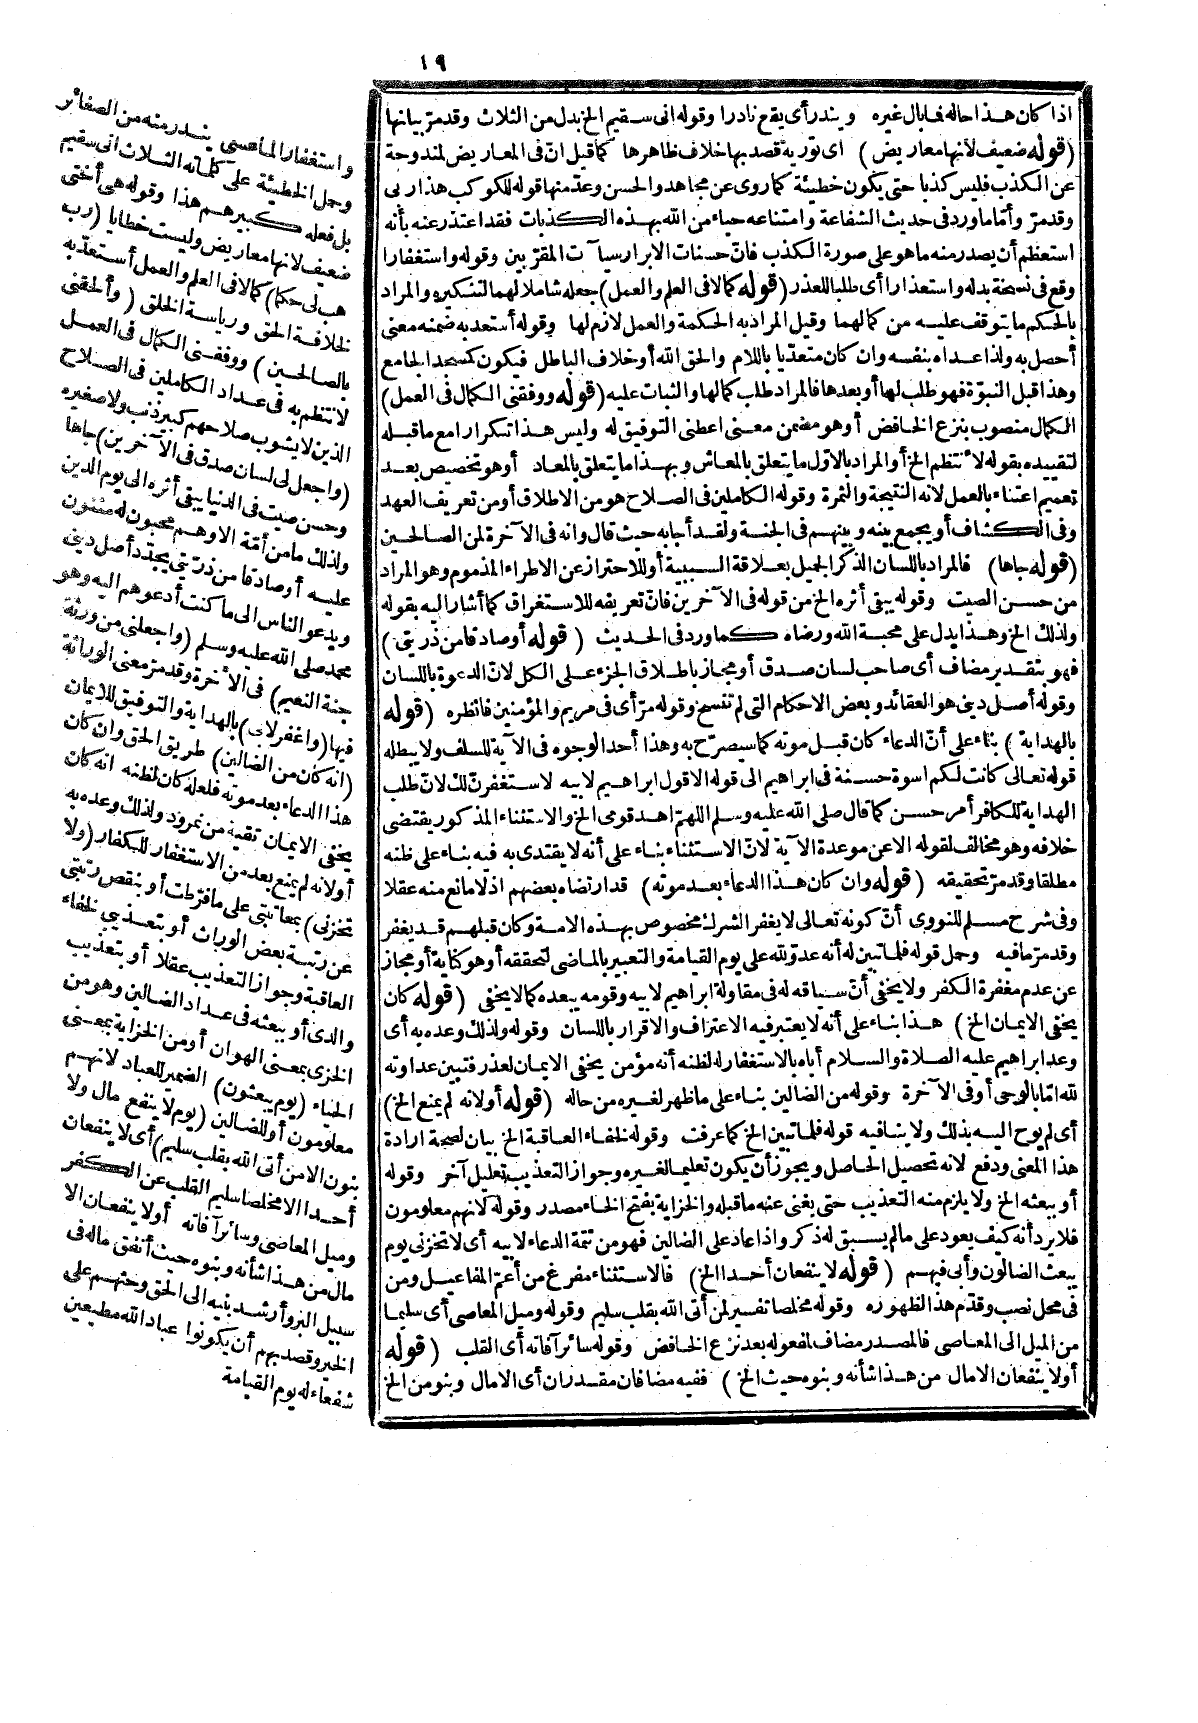 ١٩
اذا كان هذا حاله فما بال غيره ويندر أى يقع نادرا وقوله انى سقيم الخ بدل من الثلاث وقد مرّ بيانها
(قوله ضعيف لانها معاريض) اى تورية قصد بها خلاف ظاهرها كما قيل انّ فى المعاريض لمندوحة
عن الكذب فليس كذبا حتى يكون خطيئة كما روى عن مجاهد والحسن وعدّ منها قوله للكوكب هذا ربى
وقد مرّ وأمّا ما ورد فى حديث الشفاعة وامتناعه حياء من الله بهذه الكذبات فقد اعتذر عنه بأنه
استعظم أن يصدر منه ما هو على صورة الكذب فانّ حسنات الابرار سيآت المقرّبين وقوله واستغفارا
وقع فى نسخة بدله واستعذارا أى طلبا للعذر (قوله كمالا فى العلم والعمل) جعله شاملا لهما لتنكيره والمراد
بالحكم ما يتوقف عليه من كمالهما وقيل المراد به الحكمة والعمل لازم لها وقوله أستعدّ به ضمنه معنى
أحصل به ولذا عداه بنفسه وان كان متعدّيا باللام والحق الله أو خلاف الباطل فيكون كمسجد الجامع
وهذا قبل النبوّة فهو طلب لها أو بعدها فالمراد طلب كمالها والثبات عليه (قوله ووفقنى الكمال فى العمل)
الكمال منصوب بنزع الخافض أو هو مضمن معنى اعطنى التوفيق له وليس هذا تكرارا مع ما قبله
لتقييده بقوله لا نتظم الخ أو المراد بالاوّل ما يتعلق بالمعاش وبهذا ما يتعلق بالمعاد أو هو تخصيص بعد
تعميم اعتناء بالعمل لانه النتيجة والثمرة وقوله الكاملين فى الصلاح هو من الاطلاق أو من تعريف العهد
وفى الكشاف أو يجمع بينه وبينهم فى الجنة ولقد أجابه حيث قال وانه فى الآخرة لمن الصالحين
(قوله جاها) فالمراد باللسان الذكر الجميل بعلاقة السببية أو للاحتراز عن الاطراء المذموم وهو المراد
من حسن الصيت وقوله يبقى أثره الخ من قوله فى الآخرين فانّ تعريفه للاستغراق كما أشار اليه بقوله
ولذلك الخ وهذا يدل على محبة الله ورضاه كما ورد فى الحديث (قوله أو صادقا من ذريتى)
فهو بتقدير مضاف أى صاحب لسان صدق أو مجاز باطلاق الجزء على الكل لانّ الدعوة باللسان
وقوله أصل دينى هو العقائد وبعض الاحكام التى لم تنسخ وقوله مرّ أى فى مريم والمؤمنين فانظره (قوله
بالهداية) بناء على أنّ الدعاء كان قبل موته كما سيصرّح به وهذا أحد الوجوه فى الآية للسلف ولا يبطله
قوله تعالى كانت لكم اسوة حسنة فى ابراهيم الى قوله الا قول ابراهيم لابيه لاستغفرنّ لك لانّ طلب
الهداية للكافر أمر حسن كما قال صلى الله عليه وسلم اللهمّ اهد قومى الخ والاستثناء المذكور يقتضى
خلافه وهو مخالف لقوله الا عن موعدة الآية لانّ الاستثناء بناء على أنه لا يقتدى به فيه بناء على ظنه
مطلقا وقد مرّ تحقيقه (قوله وان كان هذا الدعاء بعد موته) قد ارتضاه بعضهم اذ لا مانع منه عقلا
وفى شرح مسلم للنووى أنّ كونه تعالى لا يغفر الشرك مخصوص بهذه الامة وكان قبلهم قد يغفر
وقد مرّ ما فيه وحمل قوله فلما تبين له أنه عدوّ لله على يوم القيامة والتعبير بالماضى لتحققه أو هو كناية أو مجاز
عن عدم مغفرة الكفر ولا يخفى أنّ سياقه له فى مقاولة ابراهيم لابيه وقومه يبعده كما لا يخفى (قوله كان
يخفى الايمان الخ) هذا بناء على أنه لا يعتبر فيه الاعتراف والاقرار باللسان وقوله ولذلك وعده به أى
وعد ابراهيم عليه الصلاة والسلام أباه بالاستغفار له لظنه أنه مؤمن يخفى الايمان لعذر فتبين عداوته
لله امّا بالوحى أو فى الآخرة وقوله من الضالين بناء على ما ظهر لغيره من حاله (قوله أو لانه لم يمنع الخ)
أى لم يوح اليه بذلك ولا ينافيه قوله فلما تبين الخ كما عرفت وقوله لخفاء العاقبة الخ بيان لصحة ارادة
هذا المعنى ودفع لانه تحصيل الحاصل ويجوز أن يكون تعليما لغيره وجواز التعذيب تعليل آخر وقوله
أو يبعثه الخ ولا يلزم منه التعذيب حتى يغنى عنه ما قبله والخزاية بفتح الخاء مصدر وقوله لانهم معلومون
فلا يرد أنه كيف يعود على ما لم يسبق له ذكر واذا عاد على الضالين فهو من تتمة الدعاء لابيه أى لا تخزنى يوم
يبعث الضالون وأبى فيهم (قوله لا ينفعان أحدا الخ) فالاستثناء مفرغ من أعمّ المفاعيل ومن
فى محل نصب وقدّم هذا لظهوره وقوله مخلصا تفسير لمن أتى الله بقلب سليم وقوله وميل المعاصى أى سليما
من الميل الى المعاصى فالمصدر مضاف لمفعوله بعد نزع الخافض وقوله سائر آفاته أى القلب (قوله
أو لا ينفعان الا مال من هذا شأنه وبنوه حيث الخ) ففيه مضافان مقدران أى الا مال وبنو من الخ
واستغفارا لما عسى يندر منه من الصغائر
وحمل الخطيئة على كلماته الثلاث انى سقيم
بل فعله كبيرهم هذا وقوله هى أختى
ضعيف لانها معاريض وليست خطايا (رب
هب لى حكما) كمالا فى العلم والعمل أستعدّ به
لخلافة الحق ورياسة الخلق (وألحقنى
بالصالحين) ووفقنى الكمال فى العمل
لا نتظم به فى عداد الكاملين فى الصلاح
الذين لا يشوب صلاحهم كبير ذنب ولا صغيره
(واجعل لى لسان صدق فى الآخرين) جاها
وحسن صيت فى الدنيا يبقى أثره الى يوم الدين
ولذلك ما من أمّة الا وهم محبون له مثنون
عليه أو صادقا من ذريتى يجدّد أصل دينى
ويدعو الناس الى ما كنت أدعوهم اليه وهو
محمد صلى الله عليه وسلم (واجعلنى من ورثة
جنة النعيم) فى الآخرة وقد مرّ معنى الوراثة
فيها (واغفر لابى) بالهداية والتوفيق للايمان
(انه كان من الضالين) طريق الحق وان كان
هذا الدعاء بعد موته فلعله كان لظنه انه كان
يخفى الايمان تقية من نمرود ولذلك وعده به
أو لانه لم يمنع بعد من الاستغفار للكفار (ولا
تخزنى) بمعاتبتى على ما فرّطت أو بنقص رتبتى
عن رتبة بعض الورّاث أو بتعذيبى لخفاء
العاقبة وجواز التعذيب عقلا أو بتعذيب
والدى أو يبعثه فى عداد الضالين وهو من
الخزى بمعنى الهوان أو من الخزاية بمعنى
الحياء (يوم يبعثون) الضمير للعباد لانهم
معلومون أو للضالين (يوم لا ينفع مال ولا
بنون الا من أتى الله بقلب سليم) أى لا ينفعان
أحدا الا مخلصا سليم القلب عن الكفر
وميل المعاصى وسائر آفاته أو لا ينفعان الا
مال من هذا شأنه وبنوه حيث أنفق ماله فى
سبيل البر وأرشد بنيه الى الحق وحثهم على
الخير وقصد بهم أن يكونوا عباد الله مطيعين
شفعاء له يوم القيامة